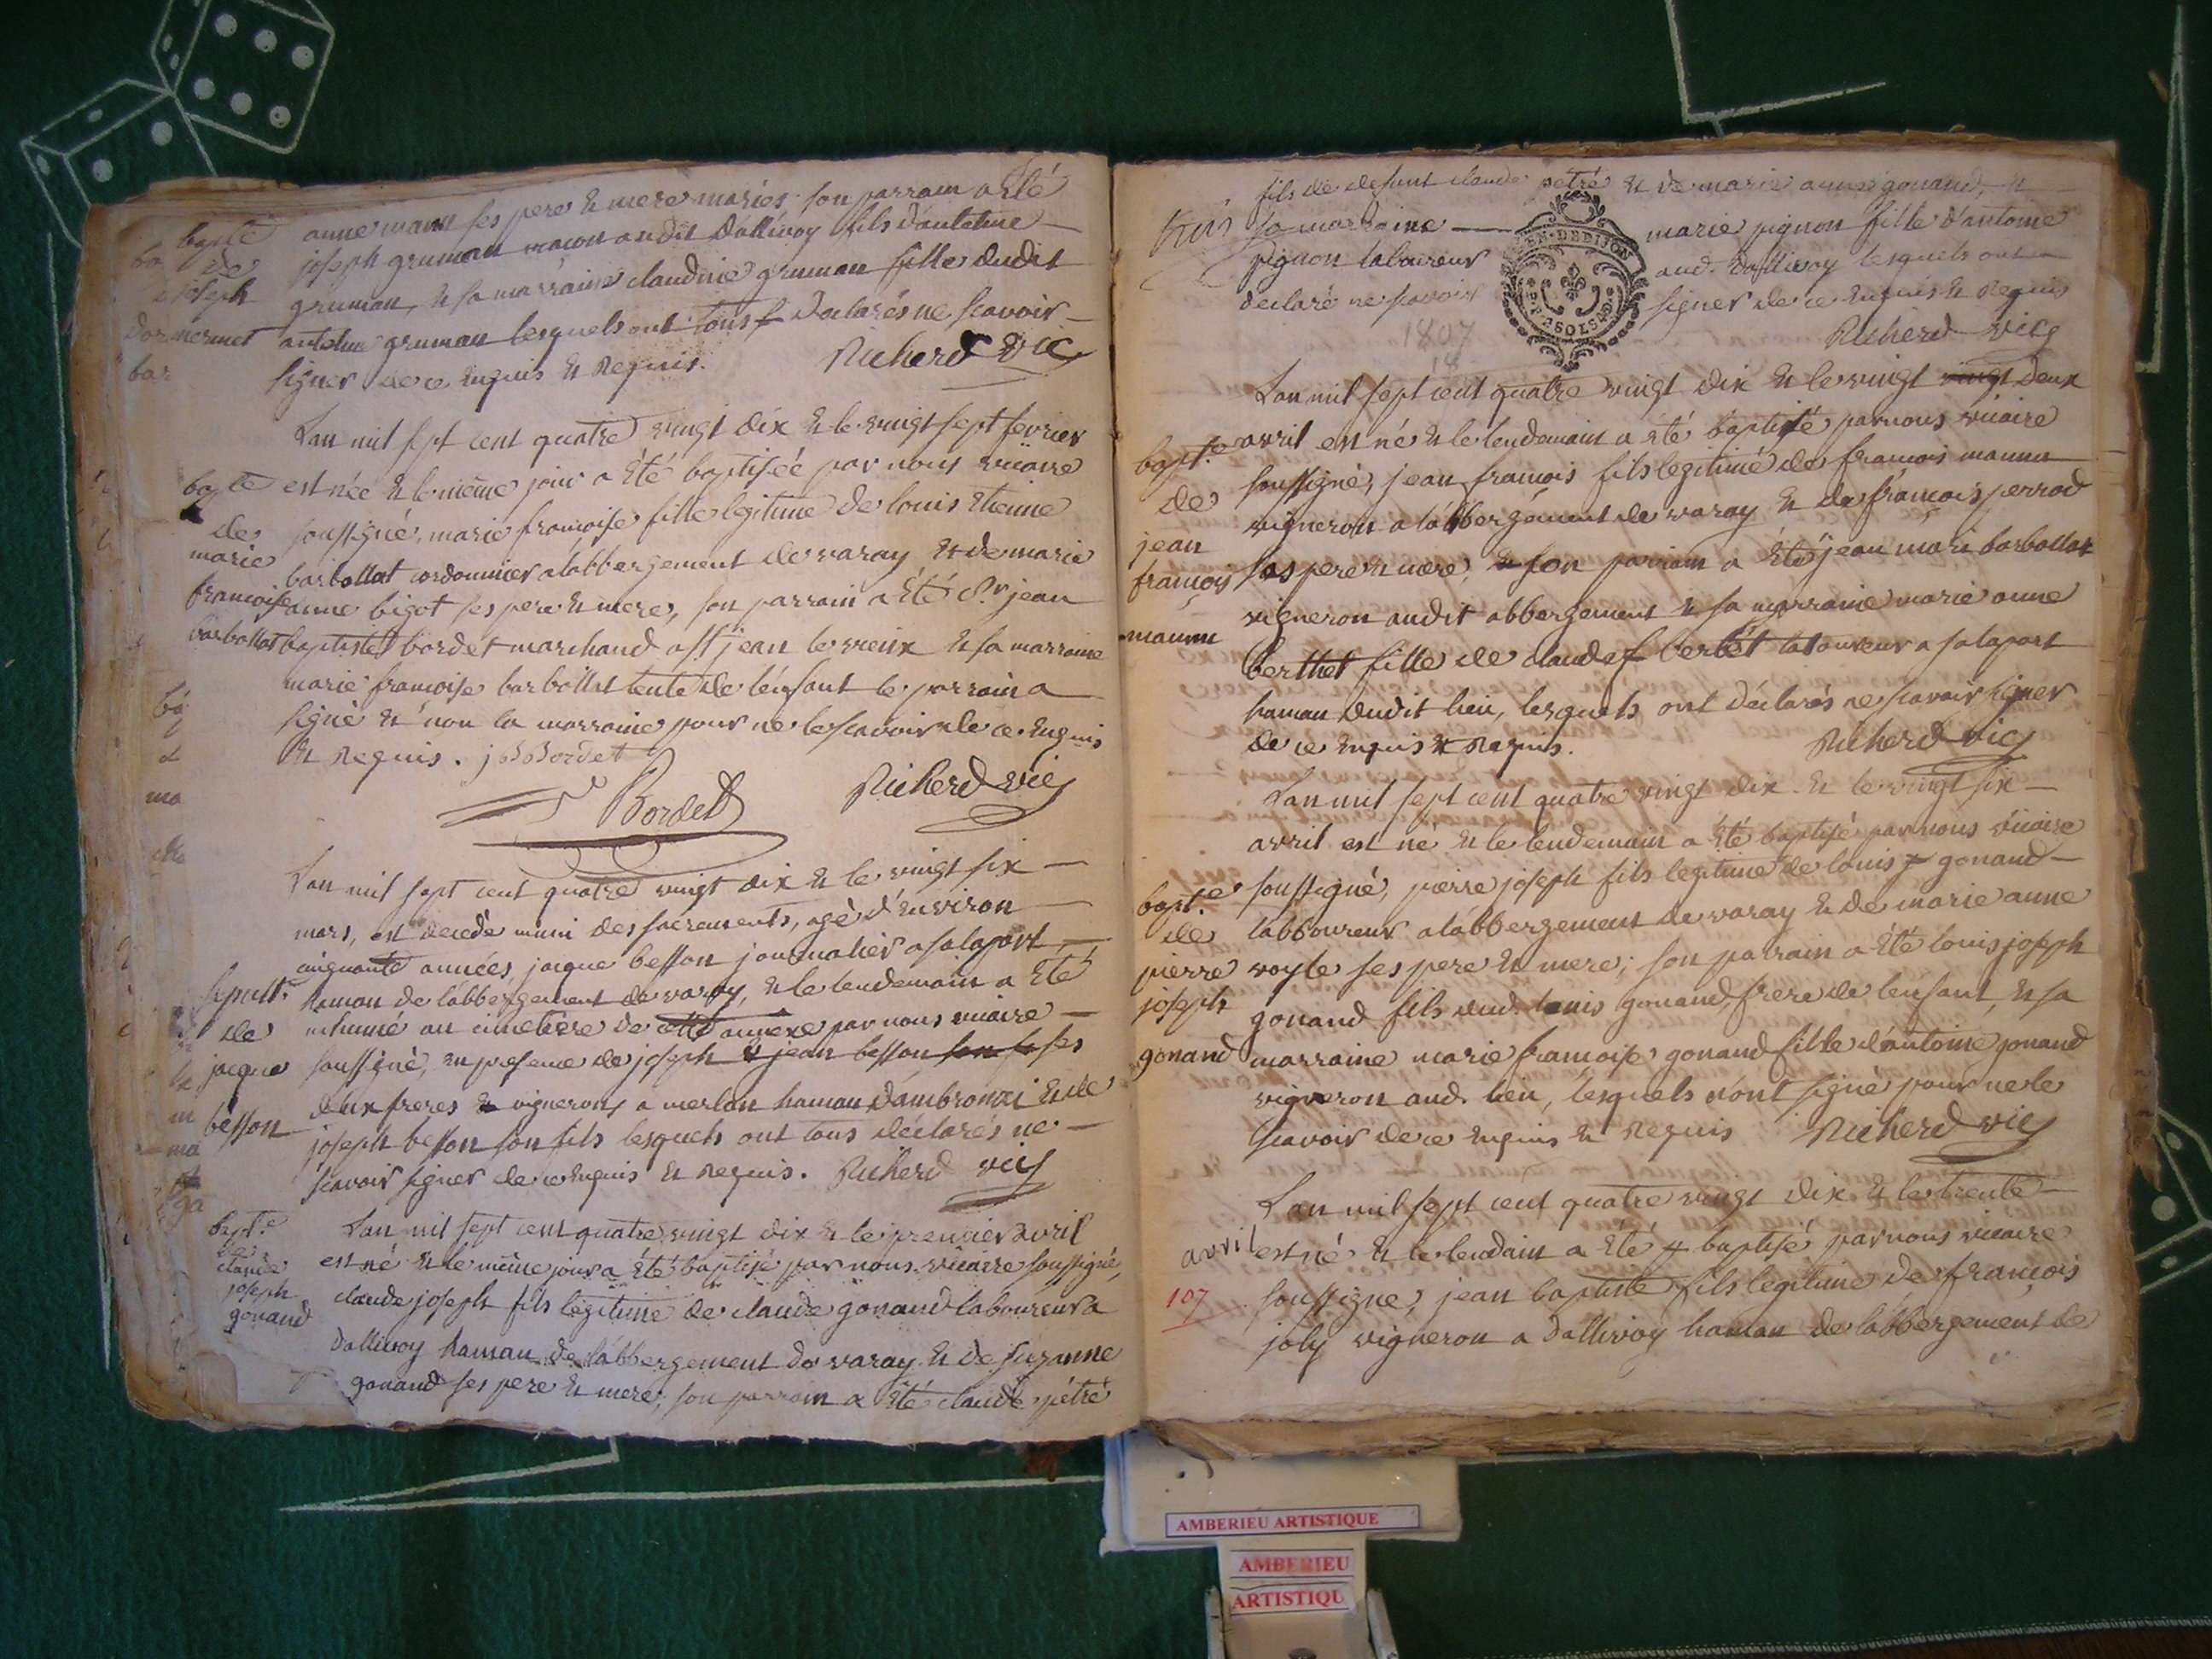 bapte
de
joseph
dormermet
anne mann ses pere & mere mariés son parrain a été
joseph gruman maçon audit dallivoy fils d'antelme
gruman, & sa marraine claudine gruman fille dudit
antelme gruman lesquels ont tous declarés ne scavoir
signer de ce enquis & requis. Richerd vic
bapte
de
marie
françoise
barbollat
L'an mil sept cent quatre vingt dix & le vingt sept fevrier
est née & le même jour a été baptisée par nous vicaire
soussigné, marie françoise fille legitime de louis etienne
barbollat cordonnier a l'abbergement de varay & de marie
anne bigot ses pere & mere, son parrain a été Sr jean
baptiste bordet marchand a st jean le vieux & sa marraine
marie françoise barbollat tente de l'enfant le parrain a
signé & non la marraine pour ne le scavoir de ce enquis
& requis. j B Bordet
Bordet Richerd vic
sepult.
de
jacque
besson
L'an mil sept cent quatre vingt dix & le vingt six
mars, est decedé muni des sacrements, agé d'environ
cinquante années, jacque besson journalier a salaport
hamau de l'abbergement de varay, & le lendemain a été
inhumé au cimetiere de cette annexe par nous vicaire
soussigné, en presence de joseph & jean besson ses
deux freres vignerons a merlan hamau d'ambronai & de
joseph besson son fils lesquels ont tous declarés ne
scavoir signer de ce enquis & requis. Richerd vic
bapt.e
de
claude
joseph
gonand
L'an mil sept cent quatre vingt dix & le premier avril
est né & le même jour a été baptisé par nous vicaire soussigné,
claude joseph fils legitime de claude gonand laboureur a
dallivoy hamau de l'abbergement de varay & de suzanne
gonand ses pere & mere; son parrain a été claude pétré
fils de defunt claude pétré & de marie anne gonand, &
sa marraine marie pignon fille d'antoine
pignon laboureur aud. dallivoy lesquels ont
declaré ne scavoir signer de ce enquis & requis
GEN. DE DIJON
1807
Richerd vic
bapt.e
de
jean
françois
maunn
L'an mil sept cent quatre vingt dix & le vingt vingt deux
avril est né & le lendemain a été baptisé par nous vicaire
soussigné, jean françois fils legitime de françois maunn
vigneron a l'abbergement de varay & de françois perrod
ses pere & mere, & son parrain a été jean mari barbollat
vigneron audit abbergement & sa marraine marie anne
berthet fille de claude berthet laboureur a salaport
hamau dudit lieu, lesquels ont déclarés ne scavoir signer
de ce enquis & requis. Richerd vic
bapt.e
de
pierre
joseph
gonand
L'an mil sept cent quatre vingt dix & le vingt six
avril est né & le lendemain a été baptisé par nous vicaire
soussigné, pierre joseph fils legitime de louis gonand
labboureur a l'abbergement de varay & de marie anne
voyle ses pere & mere; son parrain a été louis joseph
gonand fils dud. louis gonand, frere de l'enfant, & sa
marraine marie françoise gonand fille d'antoine gonand
vigneron aud. lieu, lesquels n'ont signé pour ne le
scavoir de ce enquis & requis Richerd vic
L'an mil sept cent quatre vingt dix & le trente
avril est né & le lendain a été baptisé par nous vicaire
107
soussigne, jean baptiste fils legitime de françois
joly vigneron a dallivoy hamau de l'abbergement de
AMBERIEU ARTISTIQUE
AMBERIEU
ARTISTIQU